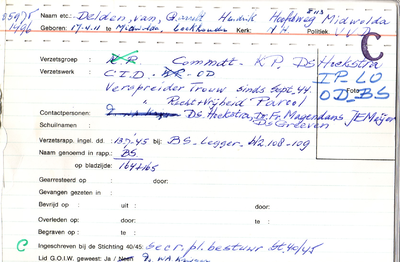 Naam etc.: Delden, van, Gerrit Hendrik Hoofdweg Midwolda
Geboren: 17-4-11 te Kerk: N.H. Politiek
C
Verzetsgroep : Commdt. K.P. Ds Hoekstra
Verzetswerk : C.I.D. OD
IP-LO
Foto
OD-BS
Verspreider Trouw sinds Sept. 44
" Recht & Vrijheid Parool
Contactpersonen: Ds. Hoekstra, Dr. F. Mayendans, J E Meijer
Schuilnaam : Ds Greeven
Verzetsrapp. ingel. d.d. 13.7.45 bij: BS-Legger. W2.108-109
Naam genoemd in rapp.: BS.
op bladzijde: 164+165
Gearresteerd op : door:
Gevangen gezeten in :
Bevrijd op : uit : door:
Overleden op: door: te :
Begraven op : te :
C Ingeschreven bij de Stichting 40/45: secr. pl. bestuur St. 40/45
Lid G.O.I.W. geweest: Ja / Neen